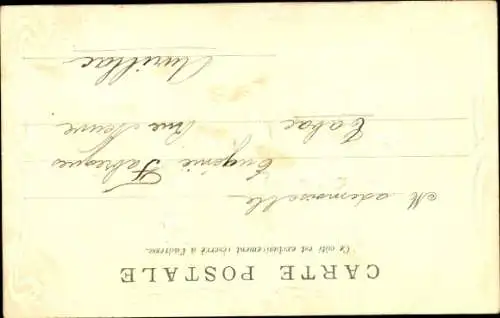 CARTE POSTALE
Ce côté est exclusivement réservé à l'adresse.
Mademoiselle
Eugénie Fabregues
Tabac Rue Neuve
Aurillac